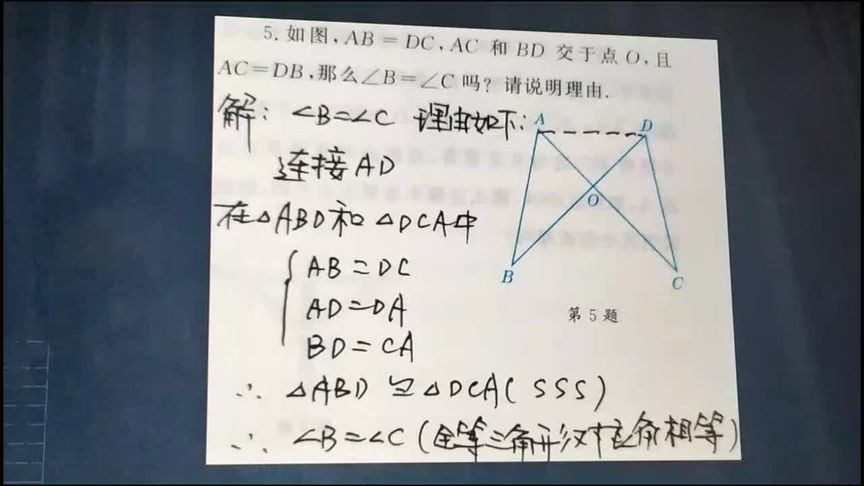 5. 如图, AB = DC, AC 和 BD 交于点 O, 且
AC=DB, 那么∠B=∠C 吗? 请说明理由.
解: ∠B=∠C 理由如下:
连接AD
在△ABD和△DCA中
AB=DC
AD=DA
BD=CA
∴ △ABD≌△DCA(SSS)
∴ ∠B=∠C(全等三角形对应角相等)
A
D
O
B
C
第 5 题